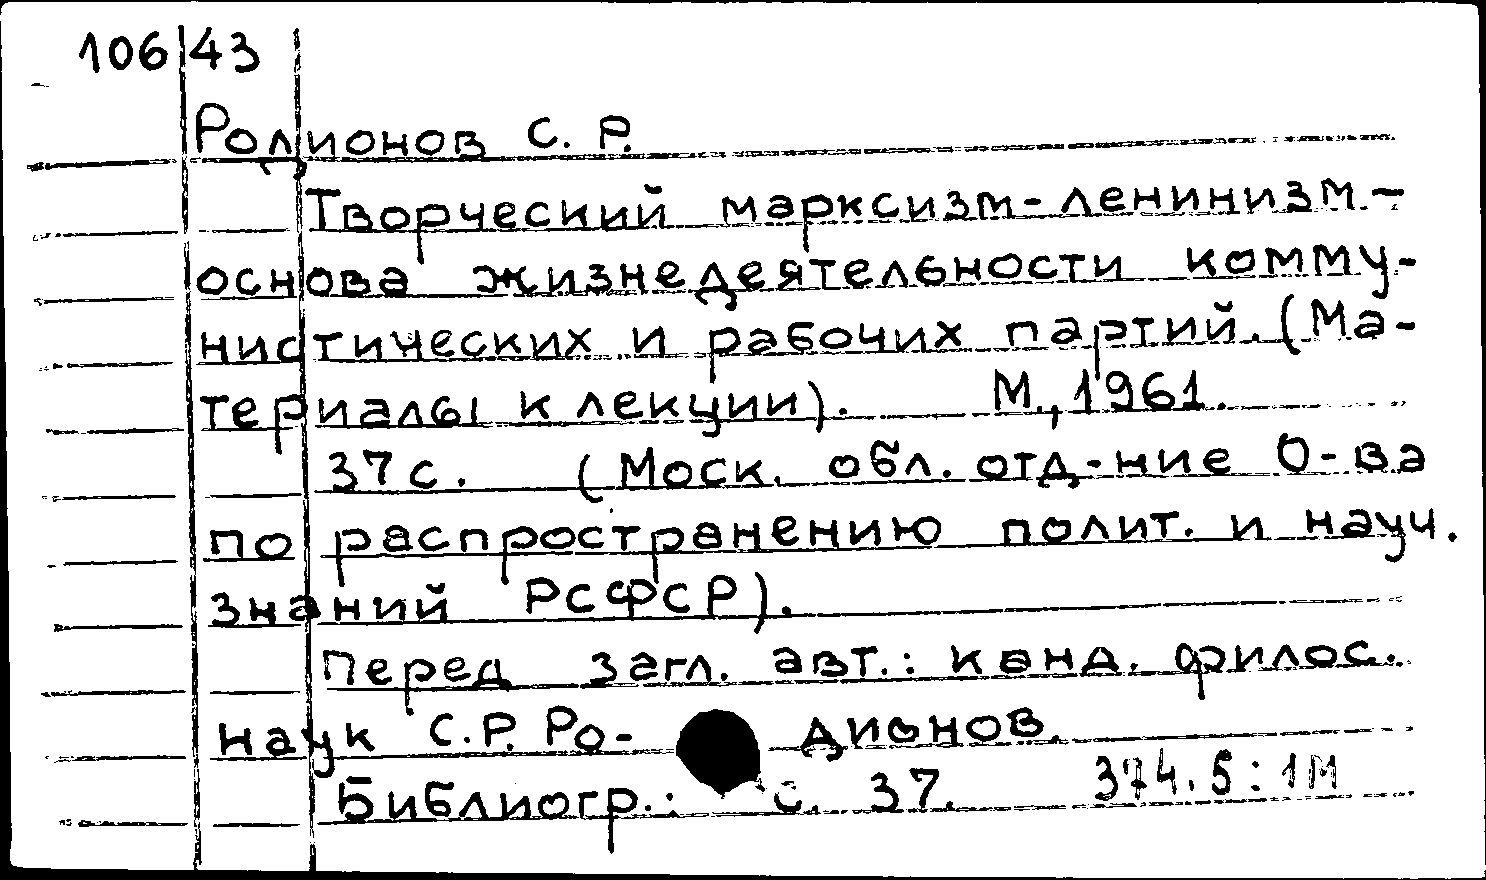 106 43
Родионов С. Р.
Творческий марксизм-ленинизм-
основа жизнедеятельности комму-
нистических и рабочих партий. (Ма-
териалы к лекции). М., 1961.
37 с. (Моск. обл. отд-ние О-ва
по распространению полит. и науч.
знаний РСФСР).
Перед загл. авт.: канд. филос.
наук С.Р. Ро- дионов.
Библиогр.: с. 37. 374.5:1М